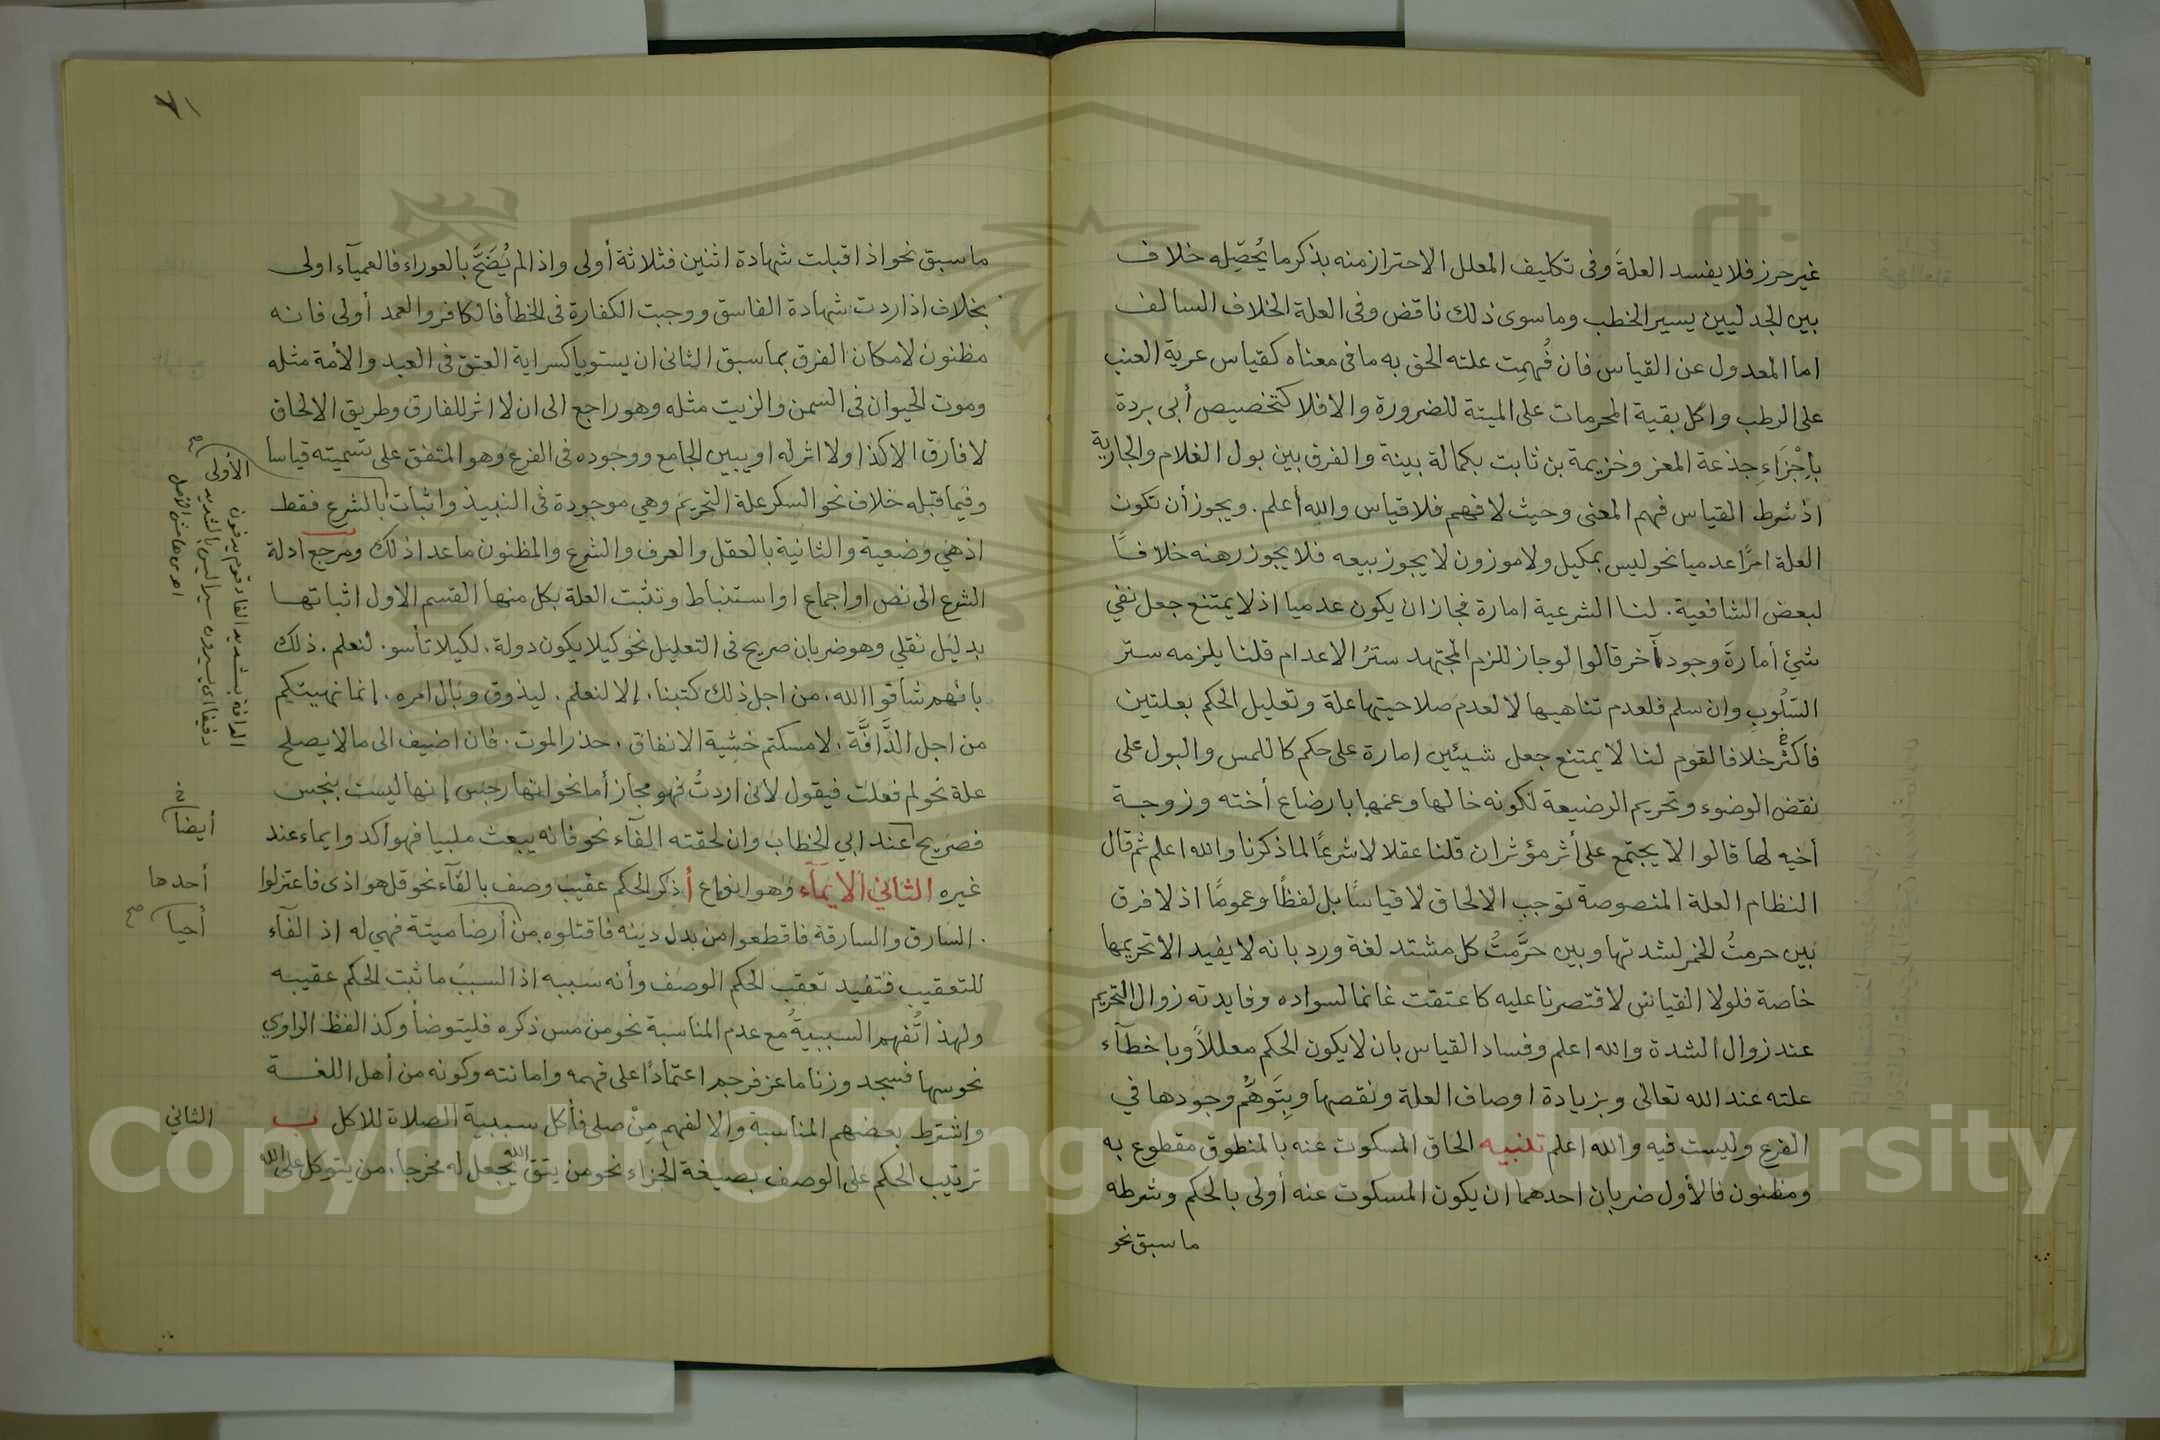 غير حرز فلا يفسد العلةَ وفى تكليف المعلل الاحتراز منه بذكر ما يُحصِّله خلاف
بين الجدليين يسير الخطب وما سوى ذلك ناقض وفى العلة الخلاف السالف
اما المعدول عن القياس فان فُهمِت علته الحق به ما فى معناه كقياس عرية العنب
على الرطب واكل بقية المحرمات على الميتة للضرورة والا فلا كتخصيص أبى بردة
بإِجْزَاءِ جذعة المعز وخزيمة بن ثابت بكمالة بينة والفرق بين بول الغلام والجارية
اذ شرط القياس فهم المعنى وحيث لا فهم فلا قياس والله أعلم . ويجوز أن تكون
العلة امرًا عدميا نحو ليس بمكيل ولا موزون لا يجوز بيعه فلا يجوز رهنه خلافًا
لبعض الشافعية . لنا الشرعية امارة فجاز ان يكون عدميا اذ لا يمتنع جعل نفي
شيئ أمارةَ وجود آخر قالوا لو جاز للزم المجتهد سترُ الاعدام قلنا يلزمه ستر
السّلُوبِ وان سلم فلعدم تناهيها لا لعدم صلاحيتها علة وتعليل الحكم بعلتين
فاكثر خلافا لقوم لنا لا يمتنع جعل شيئين امارة على حكم كاللمس والبول على
نقض الوضوء وتحريم الرضيعة لكونه خالها وعمها بارضاع أخته وزوجة
أخيه لها قالوا لا يجتمع على أثر مؤثران قلنا عقلا لا شرعًا لما ذكرنا والله اعلم ثم قال
النظام العلة المنصوصة توجب الالحاق لا قياسًا بل لفظًا وعمومًا اذ لا فرق
بين حرمتُ الخمر لشدتها وبين حرَّمتُ كل مشتد لغة ورد بانه لا يفيد الا تحريمها
خاصة فلولا القياس لاقتصرنا عليه كاعتقت غانما لسواده وفايدته زوال التحريم
عند زوال الشدة والله اعلم وفساد القياس بان لا يكون الحكم معللاً وباخطآء
علته عند الله تعالى وبزيادة اوصاف العلة ونقصها وبِتَوهُّم وجودها في
الفرع وليست فيه والله اعلم تنبيه الحاق المسكوت عنه بالمنطوق مقطوع به
ومظنون فالأول ضربان احدهما ان يكون المسكوت عنه أولى بالحكم وشرطه
ما سبق نحو
ما سبق نحو اذا قبلت شهادة اثنين فثلاثة أولى واذا لم يُضَحَّ بالعوراء فالعميآء اولى
بخلاف اذا ردت شهادة الفاسق ووجبت الكفارة فى الخطأ فالكافر والعمد أولى فانه
مظنون لامكان الفرق بما سبق الثانى ان يستويا كسراية العتق فى العبد والأمة مثله
وموت الحيوان فى السمن والزيت مثله وهو راجع الى ان لا اثر للفارق وطريق الالحاق
لا فارق الا كذا ولا اثر له او يبين الجامع ووجوده فى الفرع وهو المتفق على تسميته قياسا
وفيما قبله خلاف نحو السكر علة التحريم وهي موجودة فى النبيذ واثبات بالشرع فقط
اذ هي وضعية والثانية بالعقل والعرف والشرع والمظنون ما عدا ذلك ومرجع ادلة
الشرع الى نص او اجماع او استنباط وتثبت العلة بكل منها القسم الاول اثباتها
بدليل نقلي وهو ضربان صريح فى التعليل نحو كيلا يكون دولة . لكيلا تأسو . لنعلم . ذلك
بانهم شاقوا الله . من اجل ذلك كتبنا . إلا لنعلم . ليذوق وبال امره . إنما نهيتكم
من اجل الدَّافَّة . لامسكتم خشية الانفاق . حذر الموت . فان اضيف الى ما لا يصلح
علة نحو لم فعلت فيقول لأنى اردتُ فهو مجاز أما نحو انها رجس إنها ليست بنجس
فصريح عند ابي الخطاب وان لحقته الفآء نحو فانه يبعث ملبيا فهو اكد وايماء عند
غيره الثاني الايمآء وهو انواع أ ذكر الحكم عقيب وصف بالفآء نحو قل هو اذى فاعتزلوا
. السارق والسارقة فاقطعوا من بدل دينه فاقتلوه . من أرضا ميتة فهي له اذ الفآء
للتعقيب فتفيد تعقب الحكم الوصف وأنه سببه اذ السبب ما ثبت الحكم عقيبه
ولهذا تُفهم السببيةُ مع عدم المناسبة نحو من مس ذكره فليتوضأ وكذا لفظ الراوي
نحو سها فسجد وزنا ماعز فرجم اعتمادًا على فهمه وامانته وكونه من أهل اللغة
واشترط بعضهم المناسبة والا لفهم مِنْ صلى فأكل سببية الصلاة للاكل ب
ترتيب الحكم على الوصف بصيغة الجزاء نحو من يتق الله يجعل له مخرجا . من يتوكل على الله
الأولى صح
الدافة بتشديد الفاء قوم يدفون
دفيفا اى يسيرون سيرا ليس بالشديد
أيضا خ
أحدها
أحيا صح
الثاني
Copyright © King Saud University